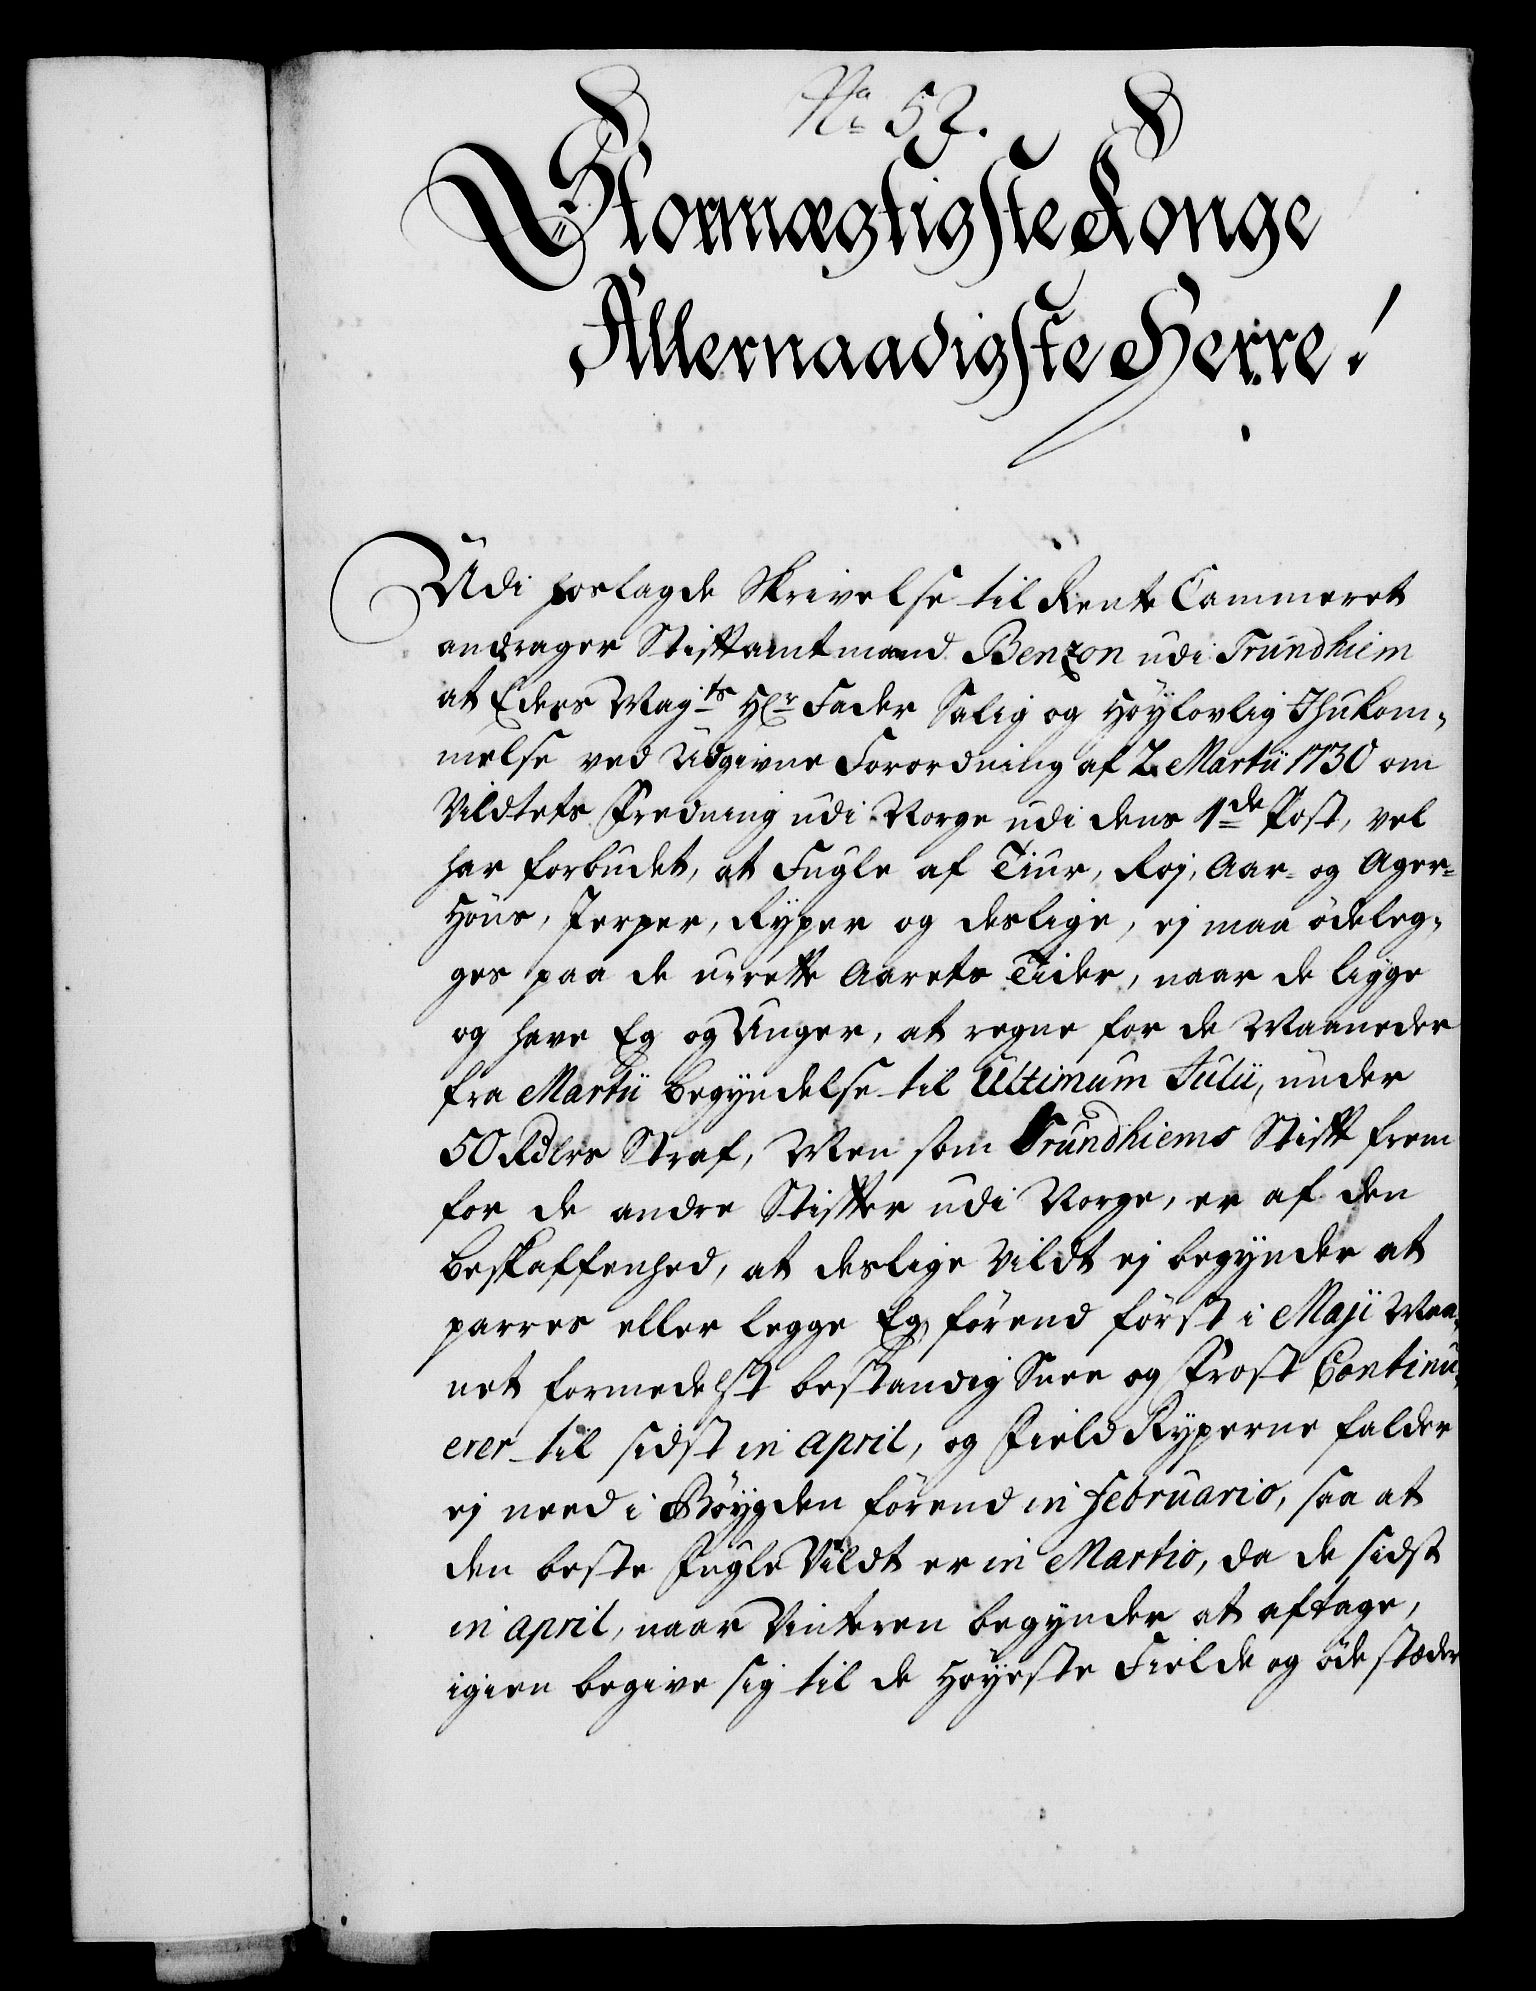 No 52.
Stormægtigste Konge
Allernaadigste Herre!
Udi hoslagde Skrivelse til Rente Cammeret
andrager Stiftamtmand Benzon udi Trundhiem
at Eders Mayts Hr Fader Salig og Höylovlig Ihukom-
melse ved Udgivne Forordning af 2. Martii 1730 om
Vildtets Fredning udi Norge udi dens 1de Post, vel
har forbudet, at Fugle af Tiur, Roj, Aar- og Ager-
Höns, Jerper, Ryper og deslige, ej maa ödeleg-
ges paa de urette Aarets Tider, naar de ligge
og have Eg og Unger, at regne for de Maaneder
fra Martii begyndelse til Ultimum Julii, under
50 Rdlrs Straf, Men som Trundhiems Stift frem
for de andre Stifter udi Norge, er af den
beskaffenhed, at deslige Vildt ej begynder at
parres eller legge Eg, förend först i Maji Maa-
net formedelst bestandig Snee og Frost Continu-
erer til sidst in april, og Field Ryperne falder
ej need i Böygden förend in Februario, saa at
den beste Fugle Vildt er in Martio, da de sidst
in april, naar Vinteren begynder at aftage,
igien begive sig til de Höyeste Fielde og öde stæder